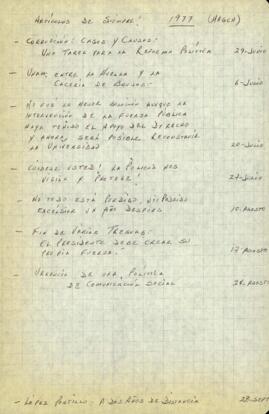 ARTÍCULOS DE SIEMPRE! 1977 (MAGCH)
- CORRUPCIÓN: CASOS Y CAUSAS:
UNA TAREA PARA LA REFORMA POLÍTICA 29-JUNIO
- UNAM; ENTRE LA HUELGA Y LA
CACERÍA DE BRUJAS: 6-JULIO
- NO FUE LA MEJOR SOLUCIÓN AUNQUE LA
INTERVENCIÓN DE LA FUERZA PÚBLICA
HAYA TENIDO EL APOYO DEL DERECHO
Y AHORA, SERÁ POSIBLE RECONSTRUIR
LA UNIVERSIDAD 20-JULIO
- CUIDESE USTED! LA POLICÍA NOS
VIGILA Y PROTEGE! 27-JULIO
- NO TODO ESTÁ PERDIDO,
EXCELSIOR UN AÑO DESPUÉS 10-AGOSTO
- FIN DE VARIAS TREGUAS:
EL PRESIDENTE DEBE CREAR SU
PROPIA FUERZA. 17-AGOSTO
- URGENCIA DE UNA POLÍTICA
DE COMUNICACIÓN SOCIAL 24-AGOSTO
- LÓPEZ PORTILLO: A DOS AÑOS DE DISTANCIA 28-SEPT